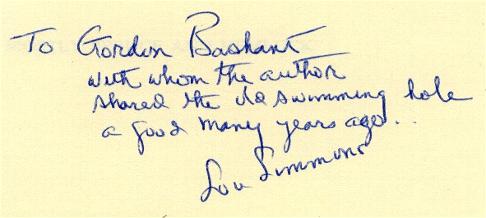 To Gordon Bashant
with whom the author
shared the swimming hole
a good many years ago...
Lou Simmons